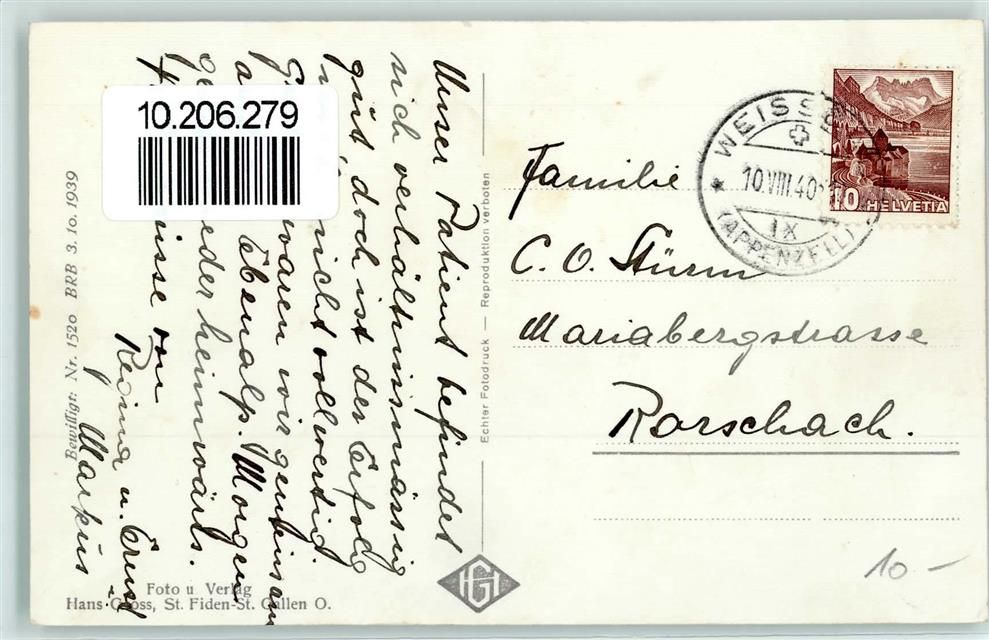 Unser Patient befindet
sich verhältnissmässig
gut doch ist der Erfolg
nicht vollwertig.
waren wir gemeinsam
Ebenalp. Morgen
heimwärts.
von
Regina u. Ernst
Markus
10.206.279
Bewilligt: Nr. 1520 BRB 3. 10. 1939
Echter Fotodruck — Reproduktion verboten
Foto u Verlag
Hans Gross, St. Fiden-St. Gallen O.
HG
WEISSB
10.VIII.40
IX
(APPENZELL)
10 HELVETIA
Familie
C. O. Stürm
Mariabergstrasse
Rorschach.
10-